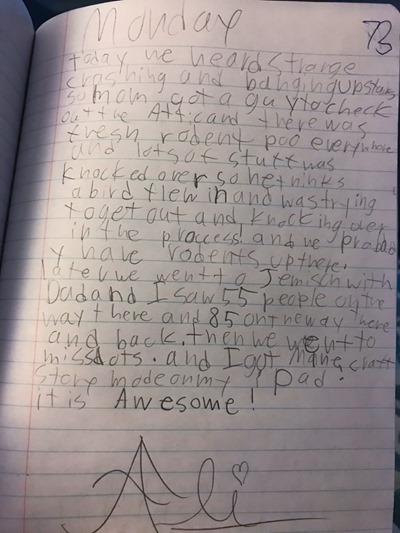 Monday
73
today we heard strange
crashing and banging upstairs
so mom got a guy to check
out the Attic and there was
fresh rodent poo everywhere
and lots of stuff was
knocked over so he thinks
a bird flew in and was trying
to get out and knocking over
in the proccess! and we probab
y have rodents up there.
later we went to Jemisch with
Dad and I saw 55 people on the
way there and 85 on the way there
and back. then we went to
missdots. and I got Minecraft
story mode on my I pad.
it is Awesome!
Ali